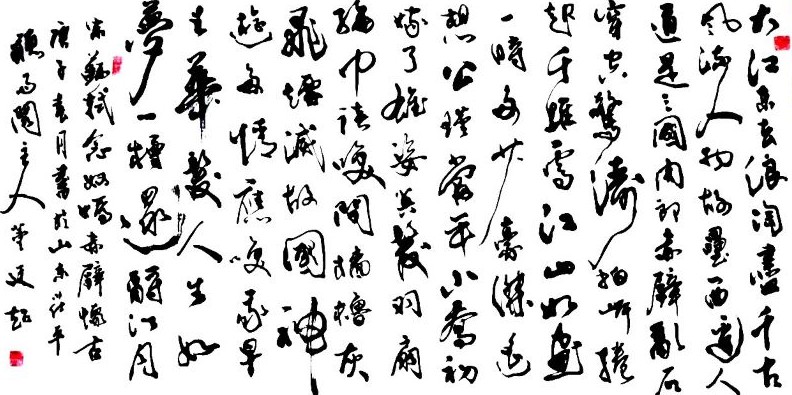 大江东去浪淘盡千古
风流人物故壘西邊人
道是三國周郎赤壁亂石
穿空驚濤拍岸捲
起千堆雪江山如畫
一時多少豪傑遙
想公瑾當年小喬初
嫁了雄姿英發羽扇
綸巾談笑間檣櫓灰
飛煙滅故國神
遊多情應笑我早
生華發人生如
夢一樽還酹江月
宋蘇軾念奴嬌赤壁懷古
庚子春月書於山东茌平
主人